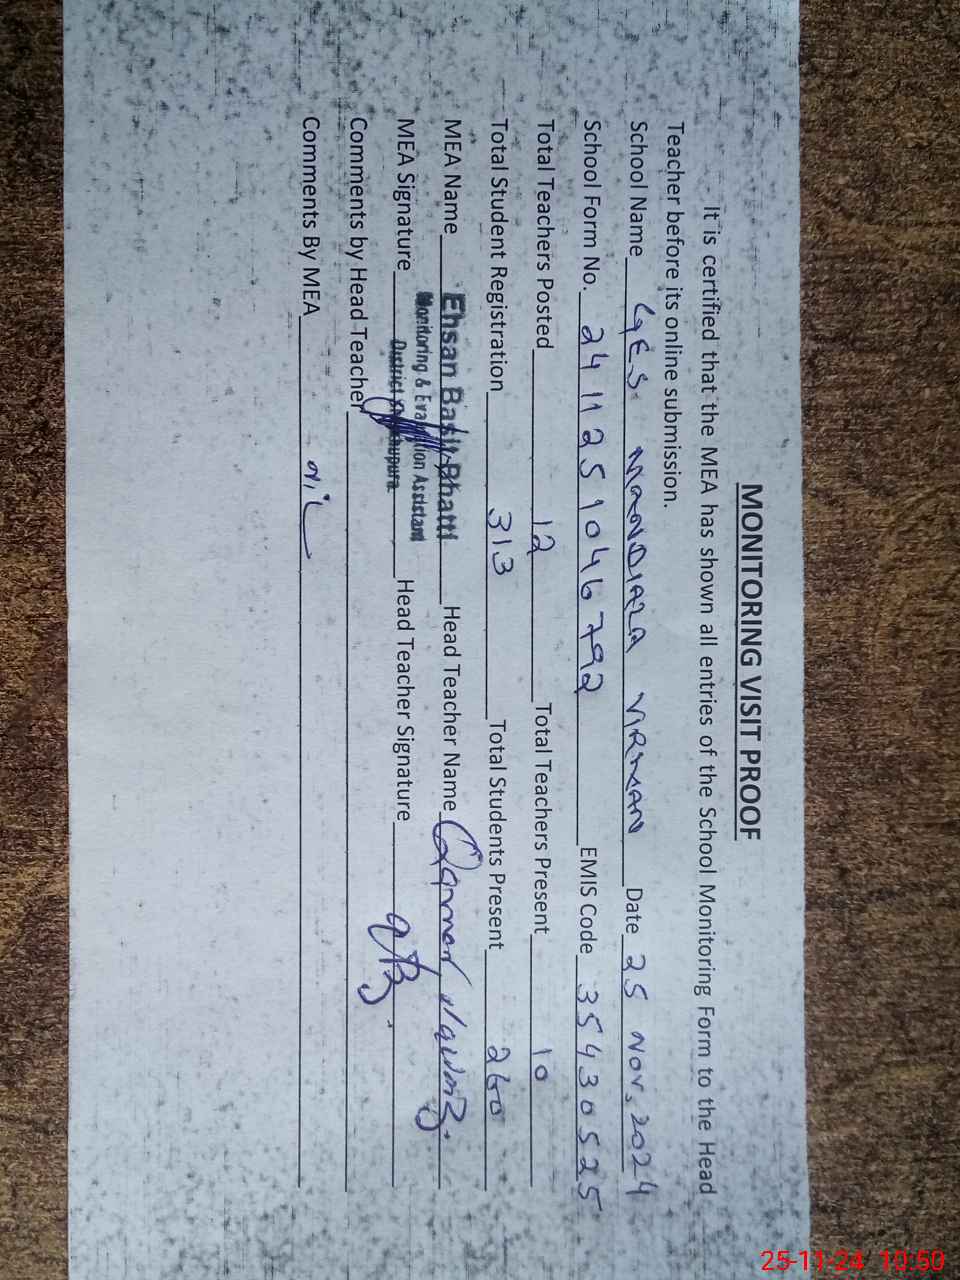 MONITORING VISIT PROOF
It is certified that the MEA has shown all entries of the School Monitoring Form to the Head
Teacher before its online submission.
School Name GES MANDIALA VIRMAN Date 25 Nov, 2024
School Form No. 2411251046792 EMIS Code 35430525
Total Teachers Posted 12 Total Teachers Present 10
Total Student Registration 313 Total Students Present 260
MEA Name Ehsan Basit Bhatti Head Teacher Name Qammar
Monitoring & Evaluation Assistant
MEA Signature District Sheikhupura Head Teacher Signature
Comments by Head Teacher
Comments By MEA Nil
25-11-24 10:50